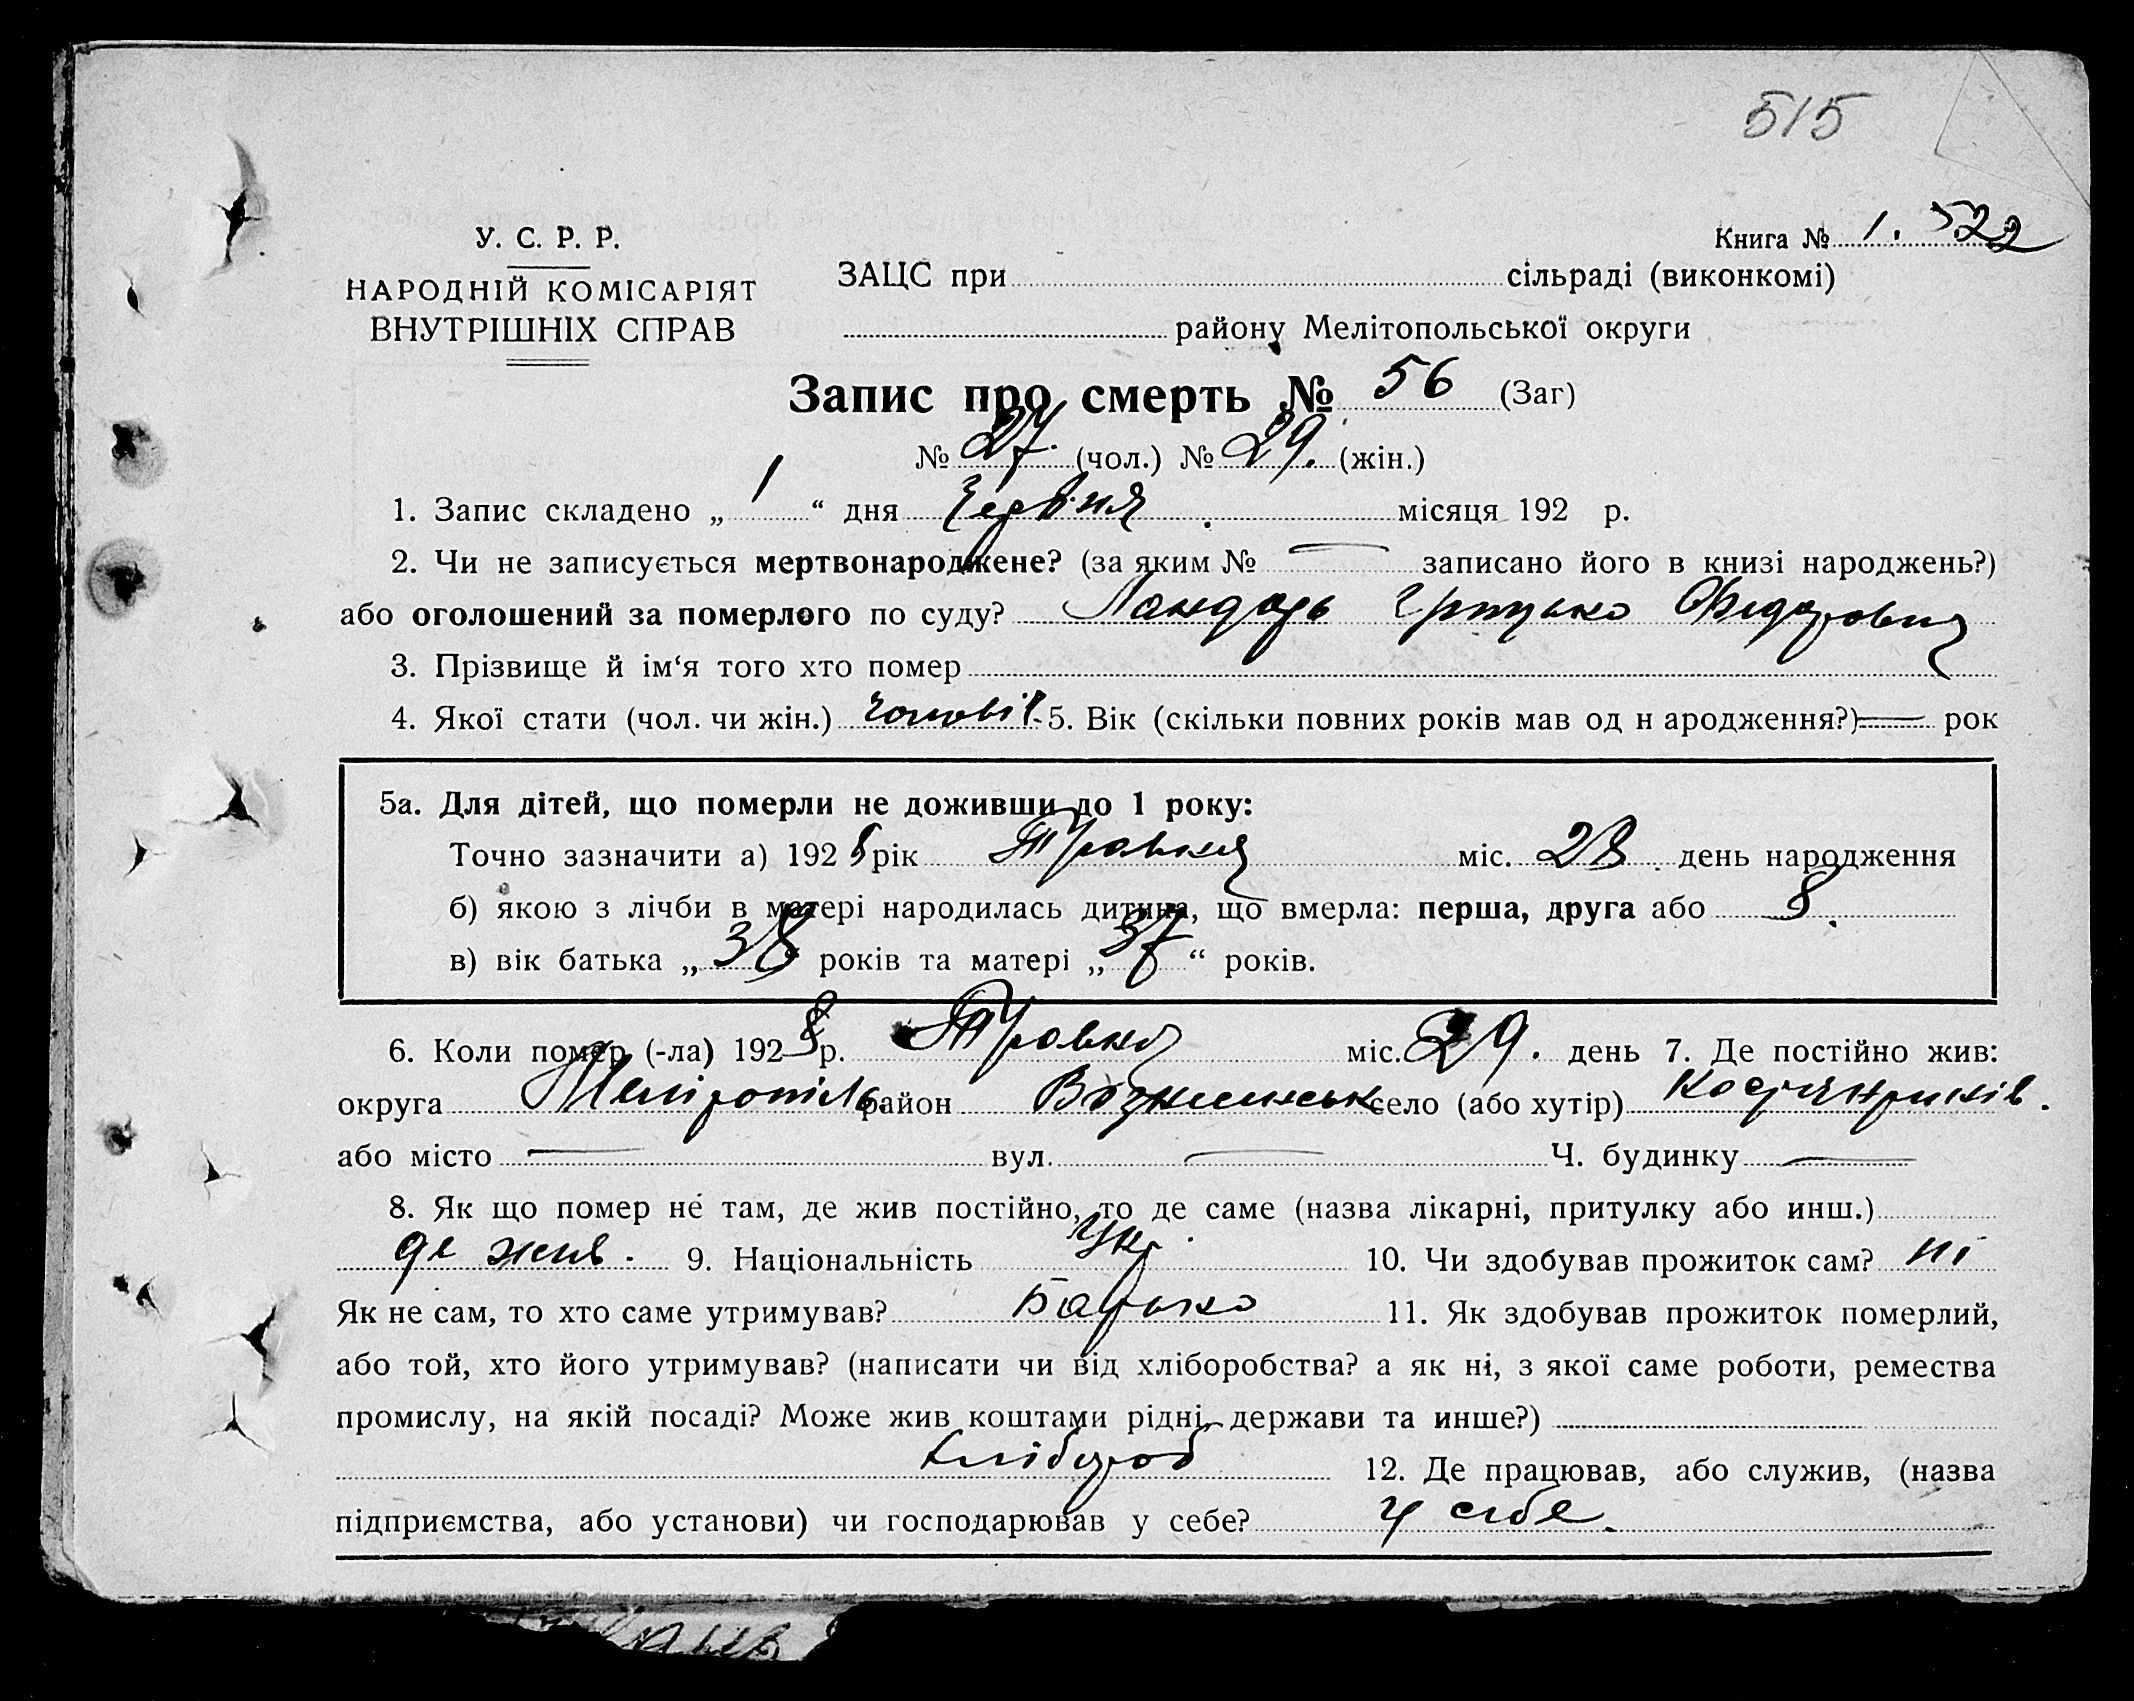 515
Книга № 1. 522
У. С. Р. Р.
НАРОДНІЙ КОМІСАРІЯТ
ВНУТРІШНІХ СПРАВ
ЗАЦС при сільраді (виконкомі)
району Мелітопольської округи
Запис про смерть № 56 (Заг)
№ 27 (чол.) № 29. (жін.)
1. Запис складено „ 1 “ дня Червня місяця 192 р.
2. Чи не записується мертвонароджене? (за яким № — записано його в книзі народжень?)
або оголошений за померлого по суду? Грицько Федорович
3. Прізвище й ім‘я того хто помер
4. Якої стати (чол. чи жін.) чоловік 5. Вік (скільки повних років мав од н ародження?) — рок
5а. Для дітей, що померли не доживши до 1 року:
Точно зазначити а) 192 8 рік Травня міс. 28 день народження
б) якою з лічби в матері народилась дитина, що вмерла: перша, друга або 8.
в) вік батька „ 38 років та матері „ 37 “ років.
6. Коли помер (-ла) 192 8 р. Травня міс. 29. день 7. Де постійно жив:
округа Мелітопіль район Вознесенськ село (або хутір)
або місто — вул. — Ч. будинку —
8. Як що помер не там, де жив постійно, то де саме (назва лікарні, притулку або инш.)
де жив. 9. Національність Укр. 10. Чи здобував прожиток сам? ні
Як не сам, то хто саме утримував? Батько 11. Як здобував прожиток померлий,
або той, хто його утримував? (написати чи від хліборобства? а як ні, з якої саме роботи, ремества
промислу, на якій посаді? Може жив коштами рідні, держави та инше?)
хлібороб 12. Де працював, або служив, (назва
підприємства, або установи) чи господарював у себе? у себе.